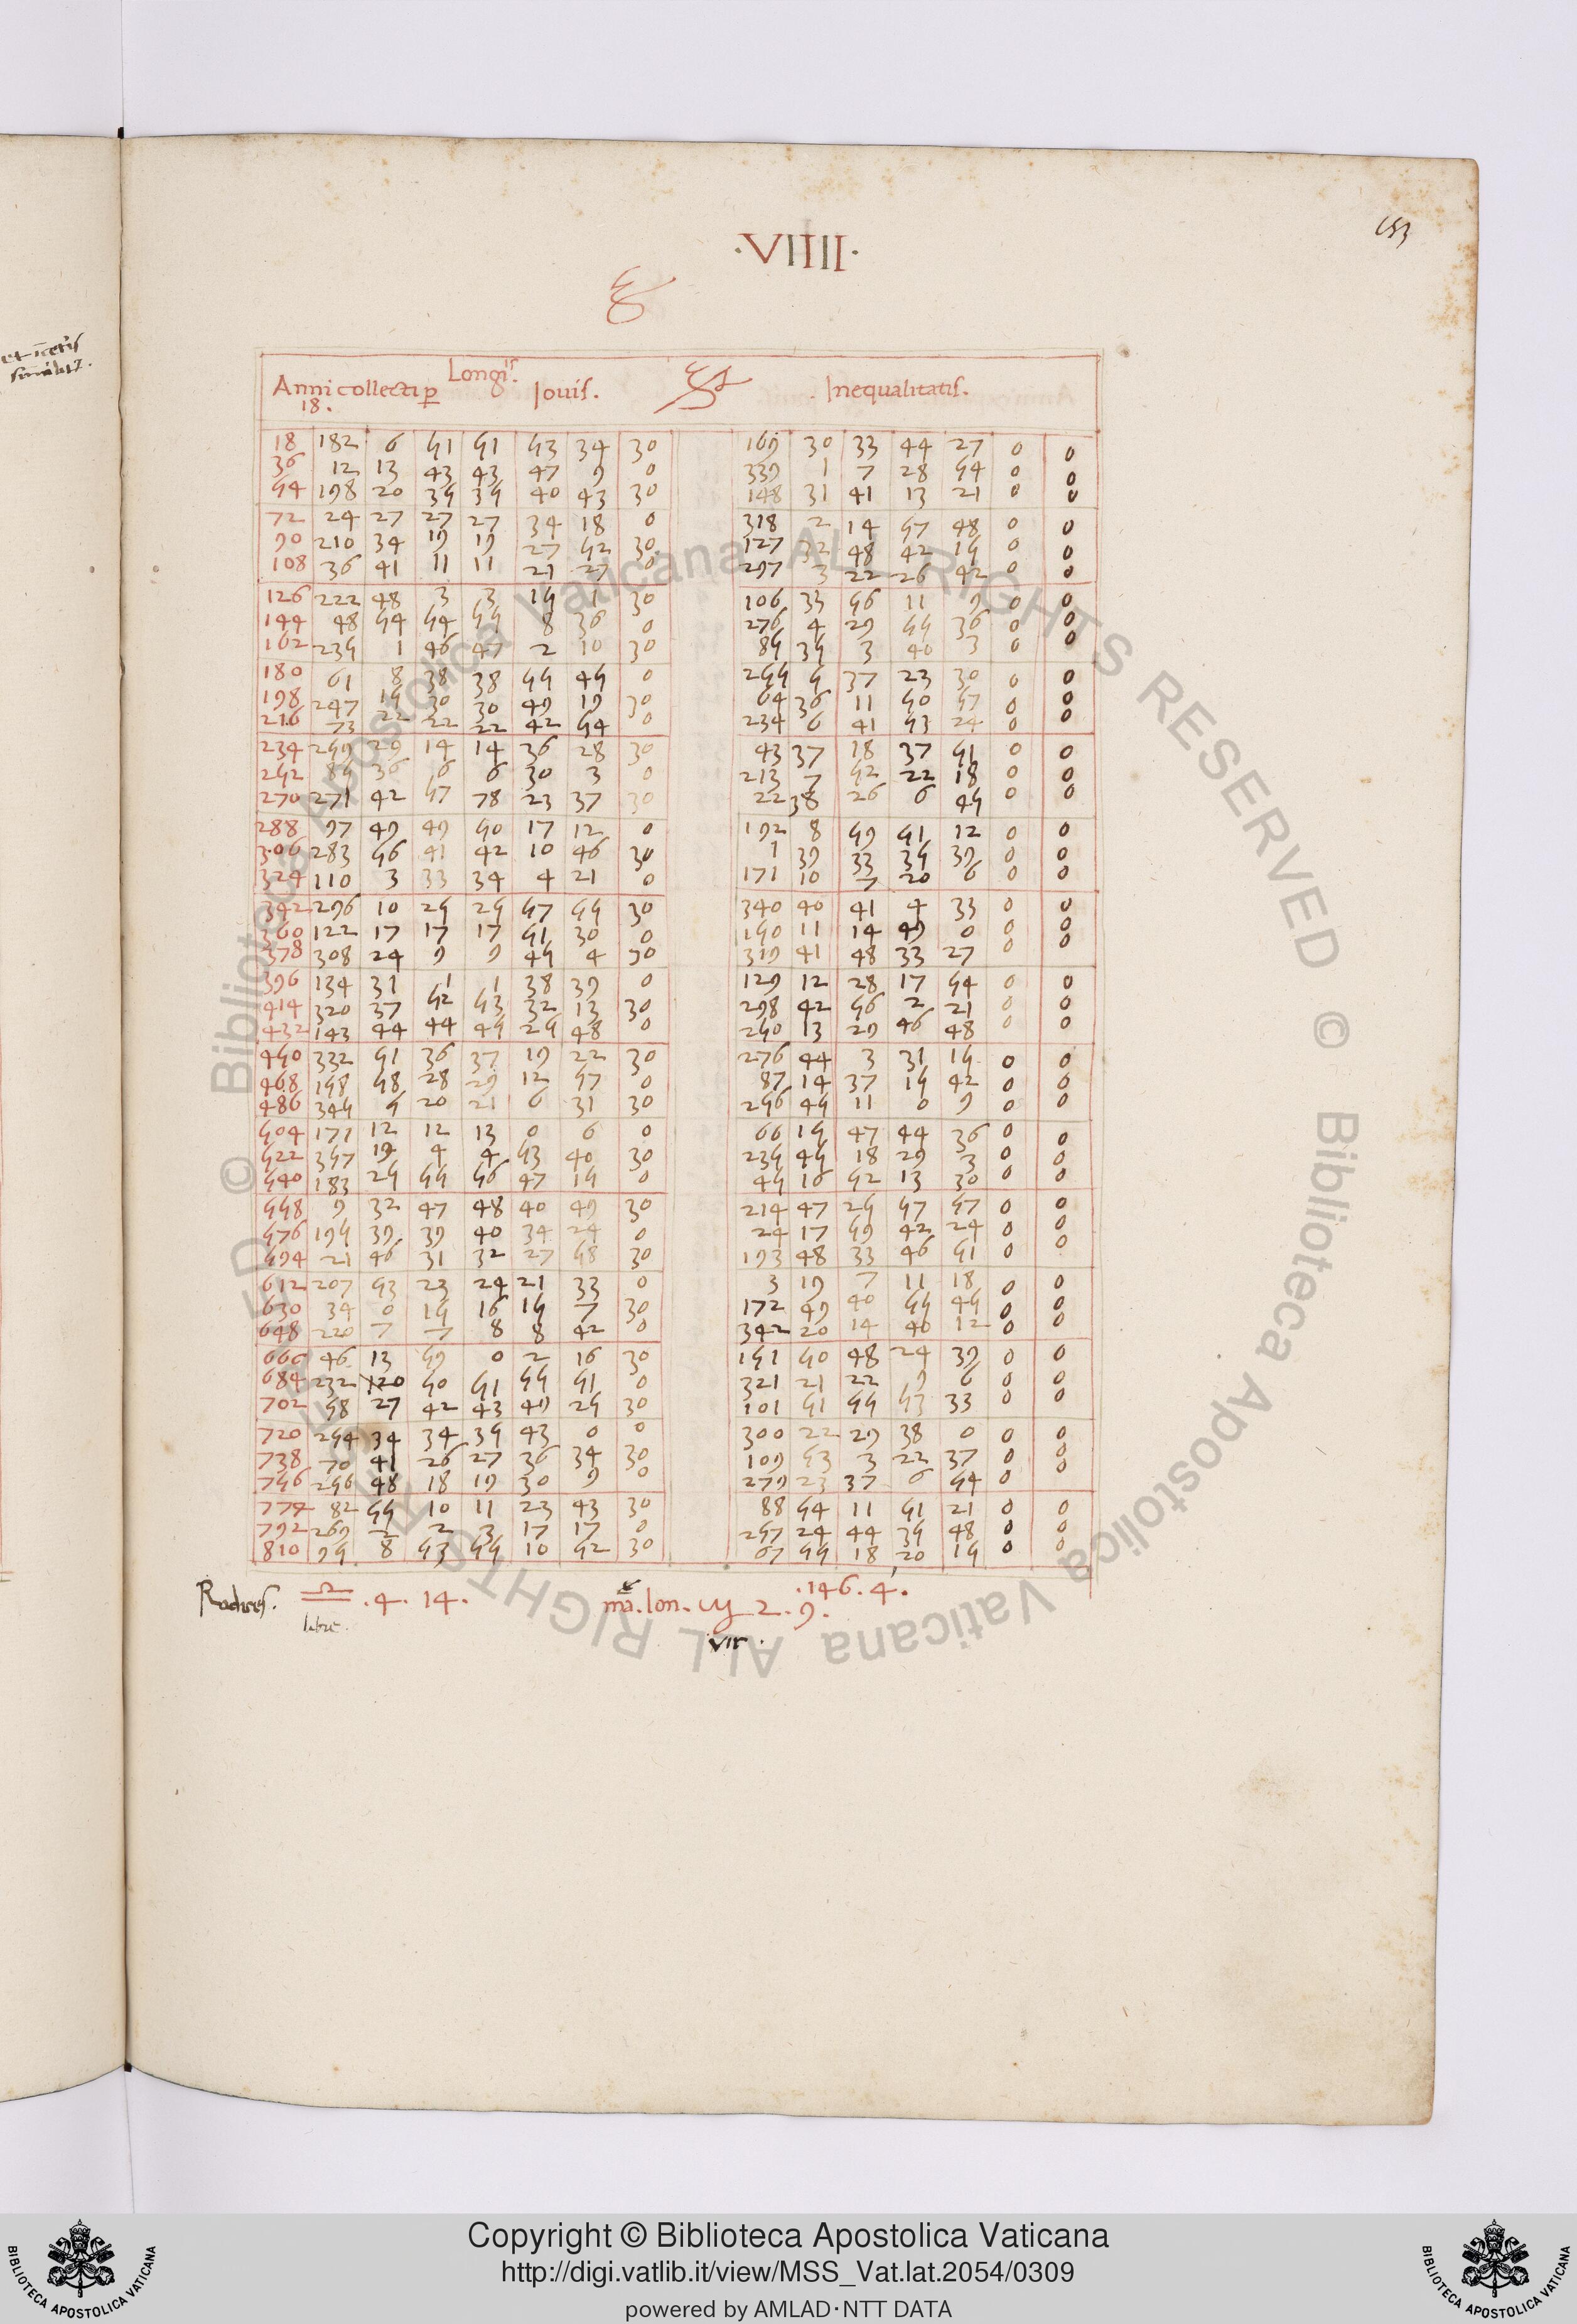 153
·VIIII·
Anni collecti p 18. Longis. Iouis. Inequalitatis.
18 182 6 51 51 53 34 30 169 30 33 44 27 0 0
36 12 13 43 43 47 9 0 339 1 7 28 54 0 0
54 198 20 35 35 40 43 30 148 31 41 13 21 0 0
72 24 27 27 27 34 18 0 318 2 14 57 48 0 0
90 210 34 19 19 27 52 30 127 32 48 42 15 0 0
108 36 41 11 11 21 27 0 297 3 22 26 42 0 0
126 222 48 3 3 15 1 30 106 33 56 11 9 0 0
144 48 54 54 55 8 36 0 276 4 29 55 36 0 0
162 235 1 46 47 2 10 30 85 35 3 40 3 0 0
180 61 8 38 38 55 45 0 255 5 37 23 30 0 0
198 247 15 30 30 49 19 30 64 36 11 50 57 0 0
216 73 22 22 22 42 54 0 234 6 41 53 24 0 0
234 259 29 14 14 36 28 30 43 37 18 37 51 0 0
252 85 36 6 6 30 3 0 213 7 52 22 18 0 0
270 271 42 57 78 23 37 30 22 38 26 6 45 0 0
288 97 49 49 50 17 12 0 192 8 59 51 12 0 0
306 283 56 41 42 10 46 30 1 39 33 35 39 0 0
324 110 3 33 34 4 21 0 171 10 7 20 6 0 0
342 296 10 25 25 57 55 30 340 40 41 4 33 0 0
360 122 17 17 17 51 30 0 150 11 14 49 0 0 0
378 308 24 9 9 45 4 30 319 41 48 33 27 0 0
396 134 31 1 1 38 39 0 129 12 28 17 54 0 0
414 320 37 52 53 32 13 30 298 42 56 2 21 0 0
432 143 44 44 45 25 48 0 250 13 29 46 48 0 0
450 332 51 36 37 19 22 30 276 44 3 31 15 0 0
468 158 58 28 29 12 57 0 87 14 37 15 42 0 0
486 345 5 20 21 6 31 30 256 45 11 0 9 0 0
504 171 12 12 13 0 6 0 66 15 47 44 36 0 0
522 357 19 4 4 53 40 30 235 45 18 29 3 0 0
540 183 25 55 56 47 15 0 45 16 52 13 30 0 0
558 9 32 47 48 40 49 30 214 47 25 57 57 0 0
576 195 39 39 40 34 24 0 24 17 59 42 24 0 0
594 21 46 31 32 27 58 30 193 48 33 46 51 0 0
612 207 53 23 24 21 33 0 3 19 7 11 18 0 0
630 34 0 15 16 15 7 30 172 49 40 55 45 0 0
648 220 7 7 8 8 42 0 342 20 14 40 12 0 0
666 46 13 59 0 2 16 30 151 50 48 24 39 0 0
684 232 20 50 51 55 51 0 321 21 22 9 6 0 0
702 58 27 42 43 49 25 30 101 51 55 53 33 0 0
720 254 34 34 35 43 0 0 300 22 29 38 0 0 0
738 70 41 26 27 36 34 30 109 53 3 22 37 0 0
756 256 48 18 19 30 9 0 279 23 37 6 54 0 0
774 82 55 10 11 23 43 30 88 54 11 51 21 0 0
792 269 2 2 3 17 17 0 257 24 44 35 48 0 0
810 95 8 53 55 10 52 30 67 55 18 20 15 0 0
Radices. ♎ .4. 14. ma. lon. ♍ 2. 9. .146. 4.
libre. vir.
© Biblioteca Apostolica Vaticana ALL RIGHTS RESERVED © Biblioteca Apostolica Vaticana ALL RIGHTS RESERVED
BIBLIOTECA APOSTOLICA VATICANA
Copyright © Biblioteca Apostolica Vaticana
http://digi.vatlib.it/view/MSS_Vat.lat.2054/0309
powered by AMLAD·NTT DATA
BIBLIOTECA APOSTOLICA VATICANA